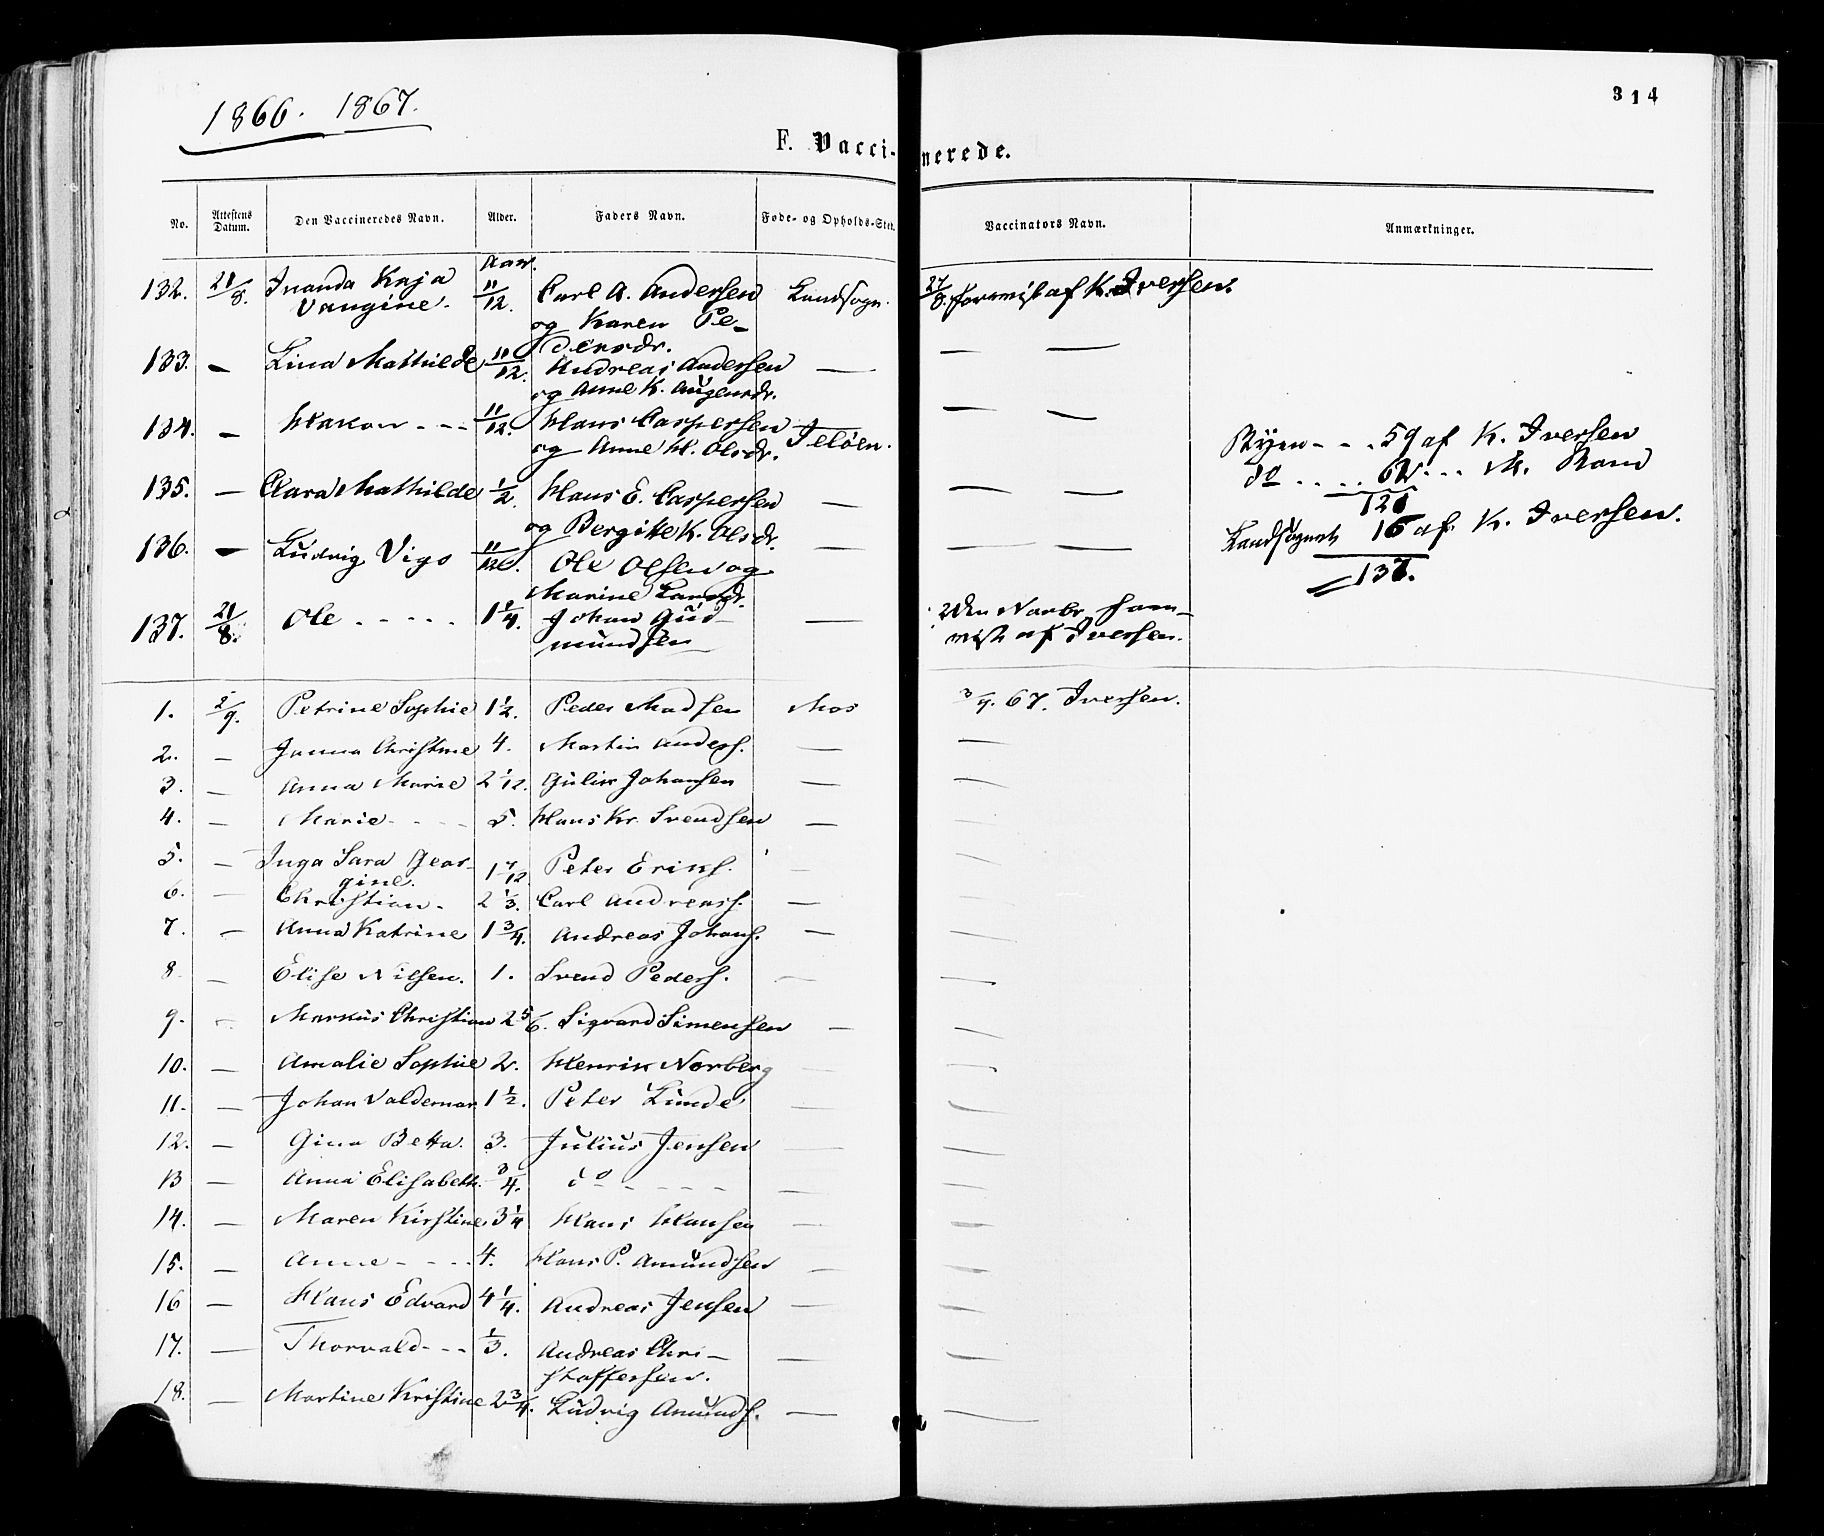 1866. 1867.
314
F. Vaccinerede.
No. Attestens Datum. Den Vaccineredes Navn. Alder. Faders Navn. Føde- og Opholds-Sted. Vaccinators Navn. Anmærkninger.
Aar.
132. 21/8. Inanda Kaja 11/12. Carl A. Andersen Landsogn. 27/8. forevist af K. Iversen.
Vangine. og Karen Pe-
dersdr.
133. — Lina Mathilde 11/12. Andreas Andersen — — —
og Anne K. Augensdr.
134. — Hakon - - - 11/12. Hans Caspersen Jeløen. — —
og Anne H. Olsdr.
Byen - - - 59 af K. Iversen
do . . . . 62 - - - M. Rand
121
Landsognet 16 af K. Iversen.
137.
135. — Clara Mathilde 1/2. Hans E. Caspersen — — —
og Bergitte K. Olsdr.
136. — Ludvig Vigo 11/12. Ole Olsen og — — —
Marine Larsdr.
137. 21/8. Ole - - - - - 1 1/4. Johan Gud- — Uden Navn
mundsen af Iversen.
1. 2/9. Petrine Sophie 1 1/2. Peder Madsen Mos 3/9. 67. Iversen.
2. — Janna Christine 4. Martin Anders. — —
3. — Anna Marie 2 1/12. Gulik Johansen — —
4. — Marie - - - - 5. Hans Kr. Svendsen — —
5. — Inga Sara Geor- 1 7/12 Peter Eriks. — —
gine.
6. — Christian - 2 1/3. Carl Andreass. — —
7. — Anna Katrine 1 3/4. Andreas Johans. — —
8 — Elise Nilsen. 1. Svend Peders. — —
9. — Markus Christian 2 5/6. Sigvard Simensen — —
10. — Amalie Sophie 2. Henrik Norberg — —
11. — Johan Valdemar 1 1/2. Peter Lunde — —
12. — Gina Betta. 3. Julius Jensen — —
13 — Anna Elisabeth. 3/4. do - - - - — —
14. — Maren Kirstine. 3 1/4 Hans Hansen — —
15. — Anne - - - - 4. Hans P. Amundsen — —
16 — Hans Edvard 4 1/4. Andreas Jensen — —
17. — Thorvald - - - 1/3. Andreas Chri- — —
stoffersen.
18. — Martine Kristine 2 3/4. Ludvig Amunds. — —